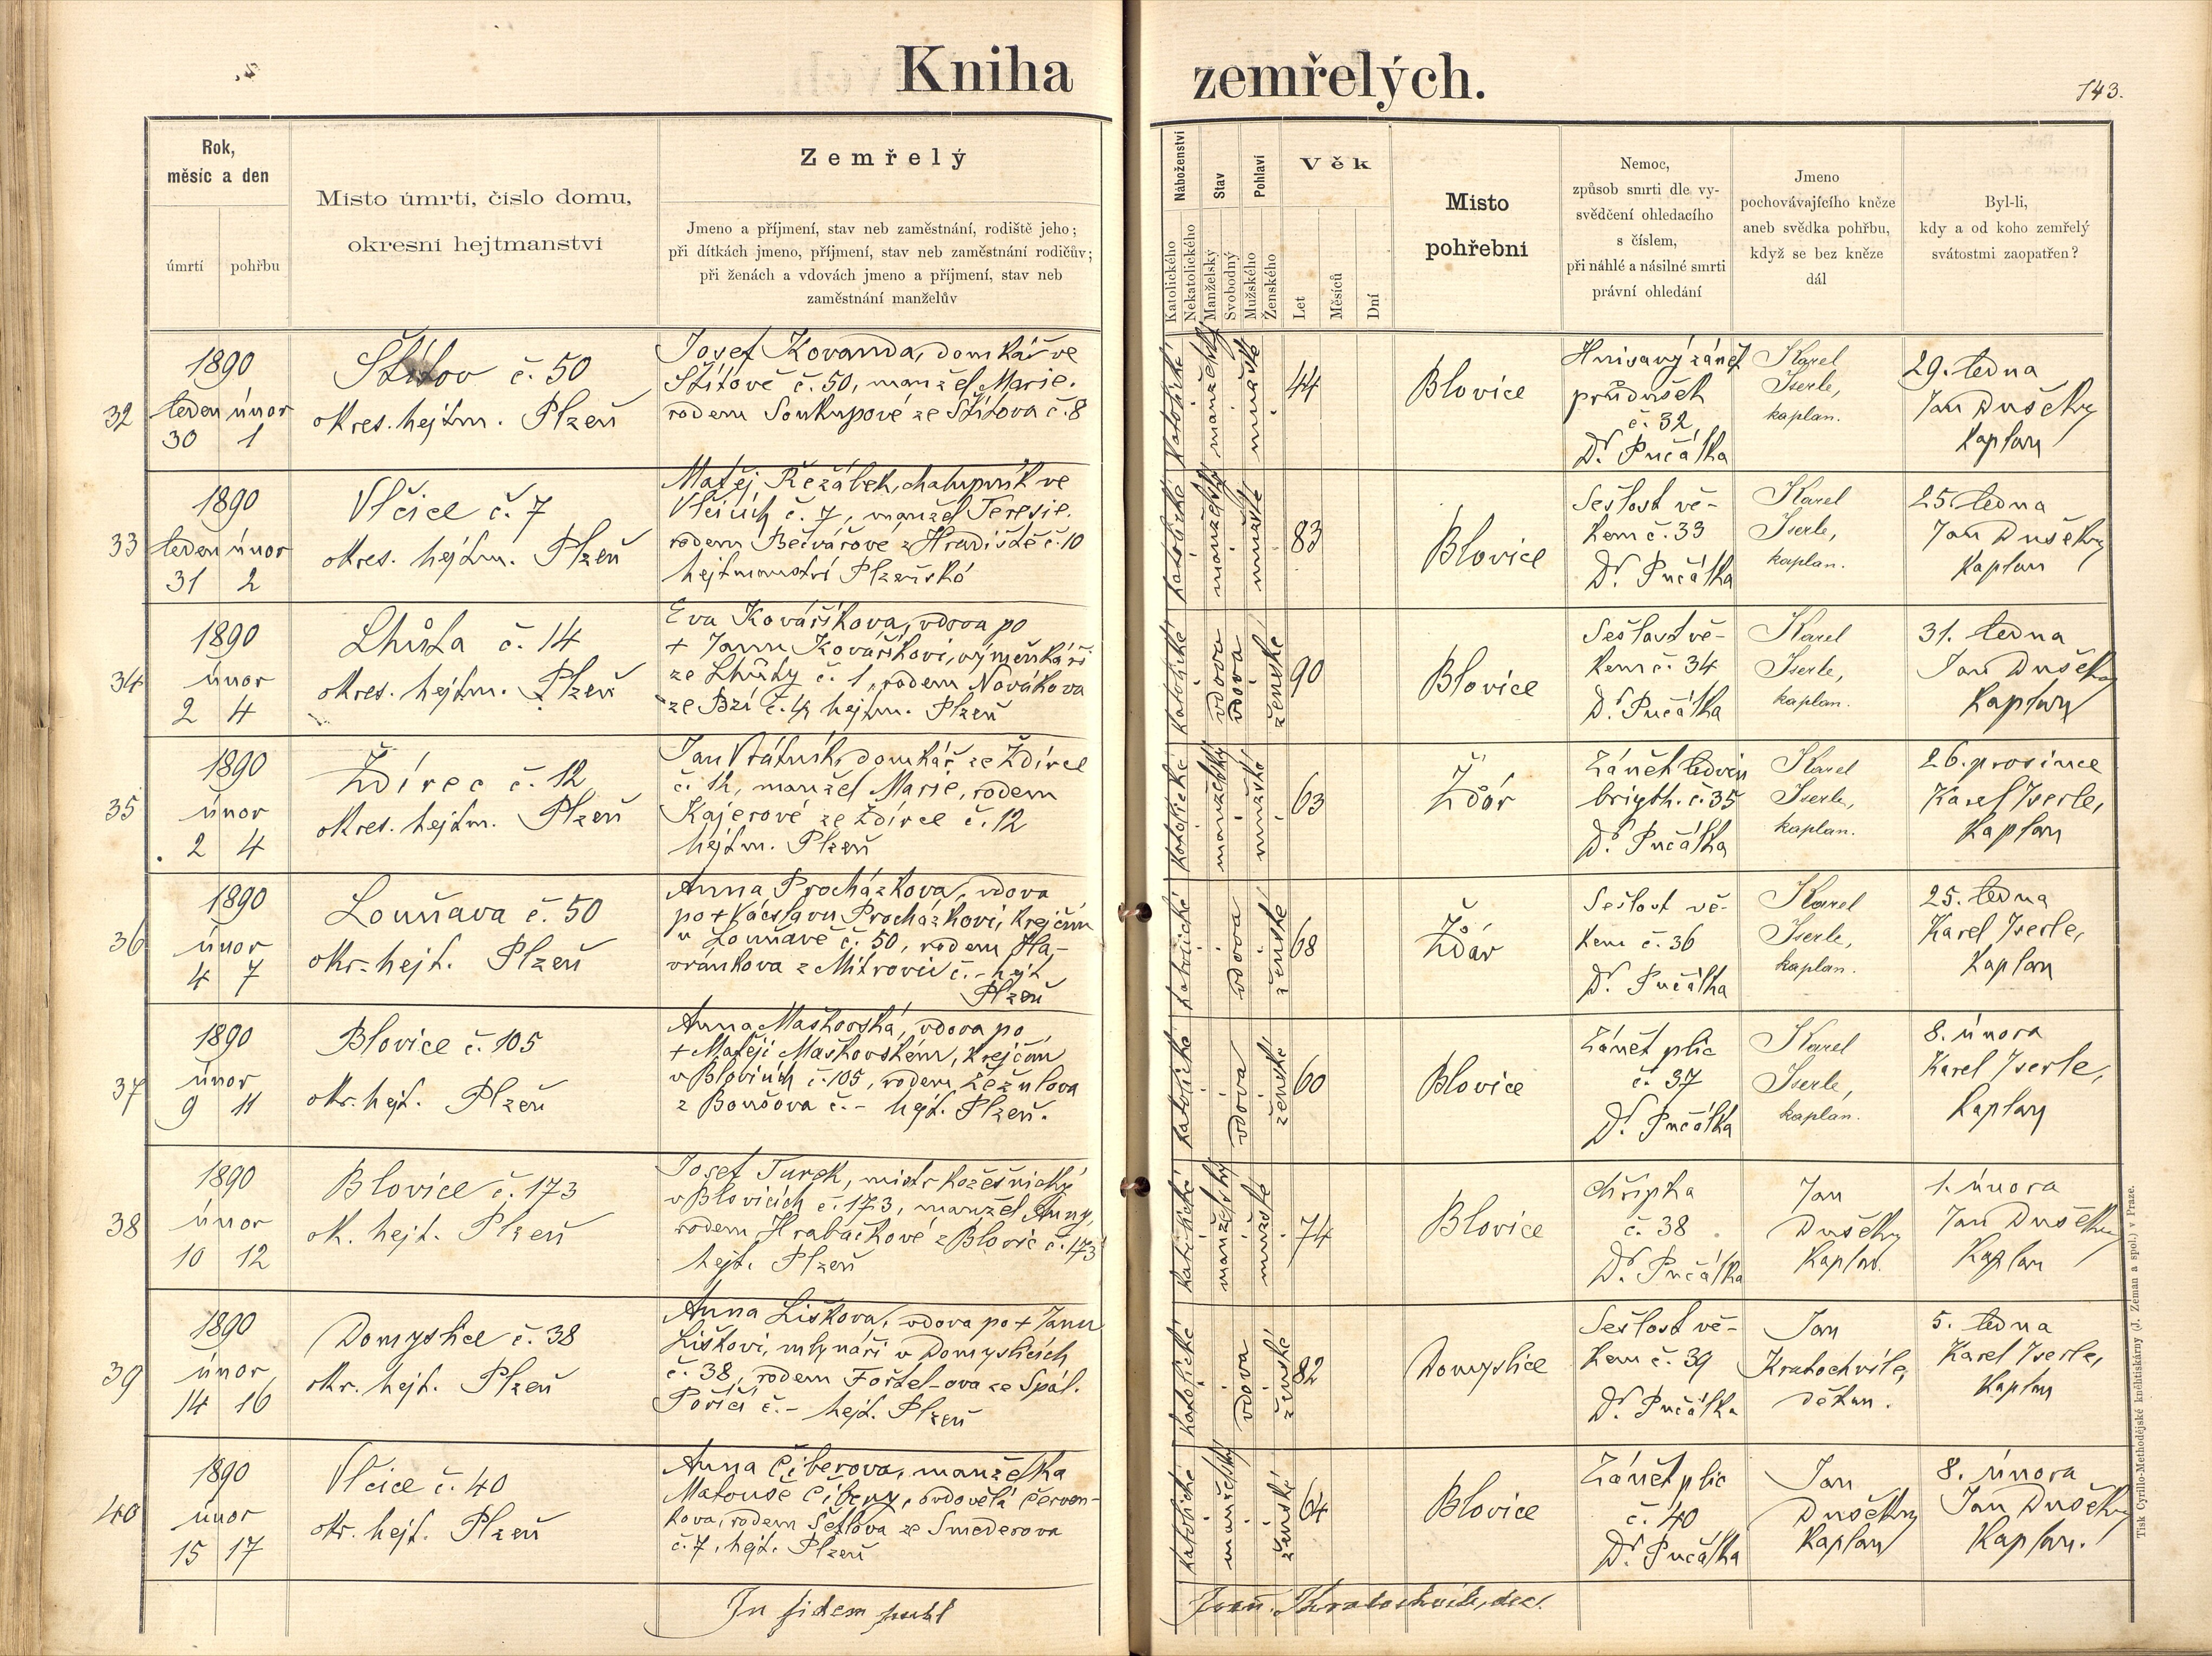 Kniha zemřelých.
143.
Rok,
měsíc a den
úmrtí pohřbu
Místo úmrtí, číslo domu,
okresní hejtmanství
Zemřelý
Jmeno a příjmení, stav neb zaměstnání, rodiště jeho;
při dítkách jmeno, příjmení, stav neb zaměstnání rodičův;
při ženách a vdovách jmeno a příjmení, stav neb
zaměstnání manželův
Náboženství
Katolického
Nekatolického
Stav
Manželský
Svobodný
Pohlaví
Mužského
Ženského
Věk
Let
Měsíců
Dní
Místo
pohřební
Nemoc,
způsob smrti dle vy-
svědčení ohledacího
s číslem,
při náhlé a násilné smrti
právní ohledání
Jmeno
pochovávajícího kněze
aneb svědka pohřbu,
když se bez kněze
dál
Byl-li,
kdy a od koho zemřelý
svátostmi zaopatřen?
32
1890
leden únor
30 1
Štítov č. 50
okres. hejtm. Plzeň
Josef Kovanda, domkář ve
Štítově č. 50, manžel Marie.
rodem Soukupové ze Štítova č. 8
katolické
manželský
mužské
44
Blovice
Hnisavý zánět
průdušek
č. 32
Dr. Pučálka
Karel
Iserle,
kaplan.
29. ledna
Jan Dušek
kaplan
33
1890
leden únor
31 2
Vlčice č. 7
okres. hejtm. Plzeň
Matěj Řežábek, chalupník ve
Vlčicích č. 7, manžel Teresie.
rodem Bečvářové z Hradiště č. 10
hejtmanství Plzeňské
katolické
manželský
mužské
83
Blovice
Sešlost vě-
kem č. 33
Dr. Pučálka
Karel
Iserle,
kaplan.
25. ledna
Jan Dušek
kaplan
34
1890
únor
2 4
Lhůta č. 14
okres. hejtm. Plzeň
Eva Kovaříkova, vdova po
+ Janu Kovaříkovi, výměnkáři
ze Lhůty č. 1, rodem Novákova
ze Bzí č. 4, hejtm. Plzeň
katolické
vdova
vdova
ženské
90
Blovice
Sešlost vě-
kem č. 34
Dr. Pučálka
Karel
Iserle,
kaplan.
31. ledna
Jan Dušek
kaplan
35
1890
únor
2 4
Ždírec č. 12
okres. hejtm. Plzeň
Jan Vrátník, domkář ze Ždírce
č. 12, manžel Marie, rodem
Kajerové ze Ždírce č. 12
hejtm. Plzeň
katolické
manželský
mužské
63
Žďár
Zánět ledvin
brigth. č. 35
Dr. Pučálka
Karel
Iserle,
kaplan.
26. prosince
Karel Iserle,
kaplan
36
1890
únor
4 7
Louňava č. 50
okr. hejt. Plzeň
Anna Procházkova, vdova
po + Václavu Procházkovi, krejčím
v Louňavě č. 50, rodem Ha-
vránkova z Mítrovic č. - hejt
Plzeň
katolické
vdova
ženské
68
Žďár
Sešlost vě-
kem č. 36
Dr. Pučálka
Karel
Iserle,
kaplan.
25. ledna
Karel Iserle,
kaplan
37
1890
únor
9 11
Blovice č. 105
okr. hejt. Plzeň
Anna Maškovská, vdova po
+ Matěji Maškovském, krejčím
v Blovicích č. 105, rodem Žežulova
z Boušova č. - hejt. Plzeň.
katolické
vdova
ženské
60
Blovice
Zánět plic
č. 37
Dr. Pučálka
Karel
Iserle,
kaplan.
8. února
Karel Iserle,
kaplan
38
1890
únor
10 12
Blovice č. 173
ok. hejt. Plzeň
Josef Turek, mistr kožešnický
v Blovicích č. 173, manžel Anny,
rodem Hrabáčkové z Blovic č. 173
hejt. Plzeň
katolické
manželský
mužské
74
Blovice
chřipka
č. 38
Dr. Pučálka
Jan
Dušek
kaplan.
1. února
Jan Dušek
kaplan
39
1890
únor
14 16
Domyslice č. 38
okr. hejt. Plzeň
Anna Liškova, vdova po + Janu
Liškovi, mlynáři v Domyslicích
č. 38, rodem Fořtel-ova ze Spál.
Poříčí č. - hejt. Plzeň
katolické
vdova
ženské
82
Domyslice
Sešlost vě-
kem č. 39
Dr. Pučálka
Jan
Kratochvíle,
děkan.
5. ledna
Karel Iserle,
kaplan
40
1890
únor
15 17
Vlčice č. 40
okr. hejt. Plzeň
Anna Číberova, manželka
Matouše Čibery, ovdovělá Červen-
kova, rodem Šetlova ze Smederova
č. 7, hejt. Plzeň
katolické
manželský
ženské
64
Blovice
Zánět plic
č. 40
Dr. Pučálka
Jan
Dušek
kaplan
8. února
Jan Dušek
kaplan.
In fidem publ
Joan. Kratochvíle, dec.
Tisk Cyrillo-Methodějské kněhtiskárny (J. Zeman a spol.) v Praze.